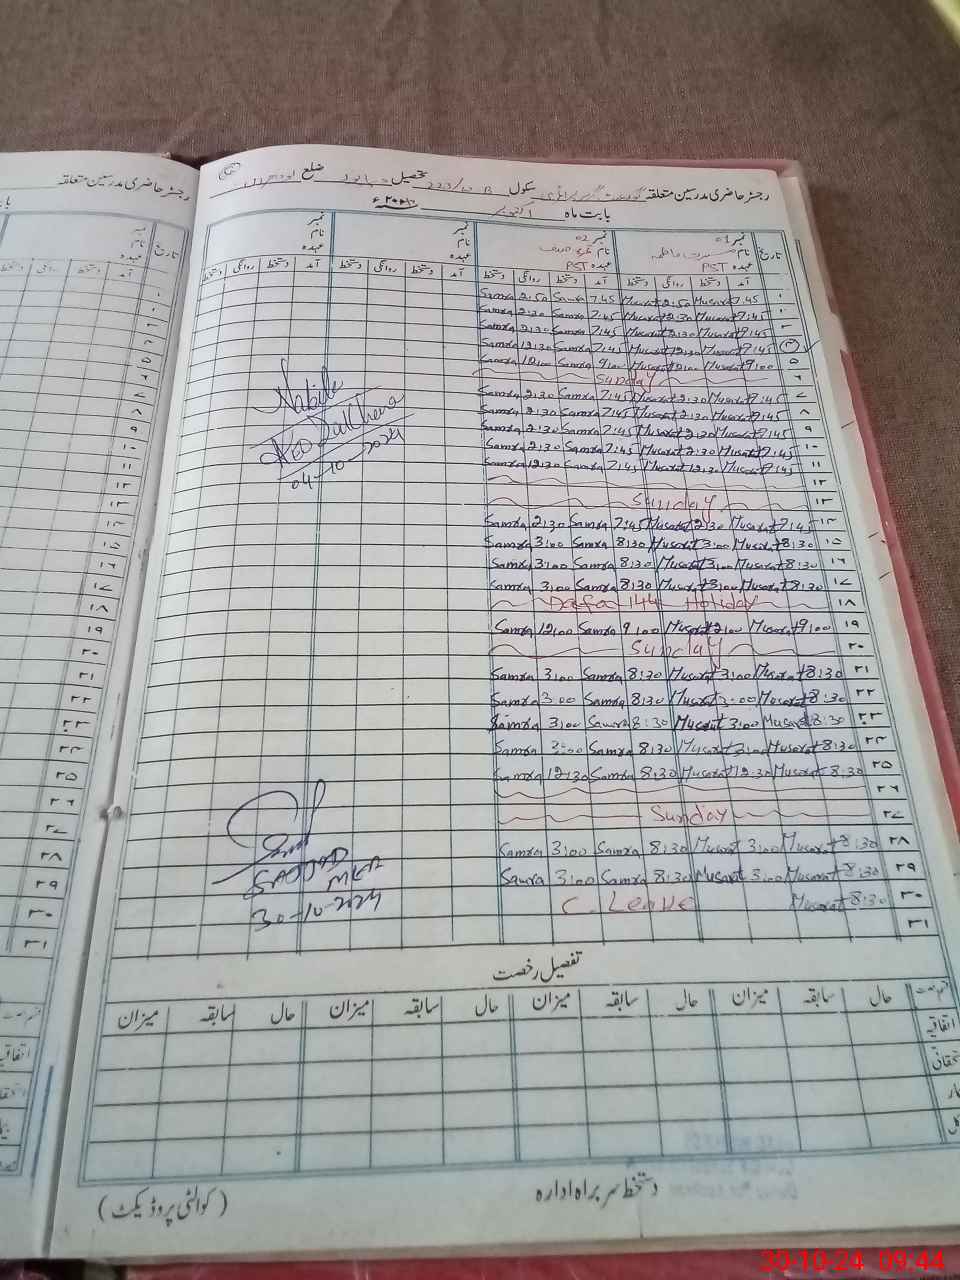 رجسٹر حاضری مدرسین متعلقہ
رجسٹر حاضری مدرسین متعلقہ سکول 223/10 B تحصیل ضلع
بابت ماہ اکتوبر
تاریخ نمبر 01 نمبر 02 نمبر نمبر
نام مسرت فاطمہ نام نام نام
عہدہ PST عہدہ PST عہدہ عہدہ
آمد دستخط روانگی دستخط آمد دستخط روانگی دستخط آمد دستخط روانگی دستخط آمد دستخط روانگی دستخط
Samra 2:50 Samra 7:45 Musarat 2:50 Musarat 7:45 ۱
Samra 2:30 Samra 7:45 Musarat 2:30 Musarat 7:45 ۲
Samra 2:30 Samra 7:45 Musarat 2:30 Musarat 7:45 ۳
Samra 12:30 Samra 7:45 Musarat 12:30 Musarat 7:45 ۴
Samra 12:00 Samra 9:00 Musarat 12:00 Musarat 9:00 ۵
Sunday ۶
Samra 2:30 Samra 7:45 Musarat 2:30 Musarat 7:45 ۷
Samra 2:30 Samra 7:45 Musarat 2:30 Musarat 7:45 ۸
Samra 2:30 Samra 7:45 Musarat 2:30 Musarat 7:45 ۹
Samra 2:30 Samra 7:45 Musarat 2:30 Musarat 7:45 ۱۰
Samra 12:30 Samra 7:45 Musarat 12:30 Musarat 7:45 ۱۱
۱۲
Sunday ۱۳
Samra 2:30 Samra 7:45 Musarat 2:30 Musarat 7:45 ۱۴
Samra 3:00 Samra 8:30 Musarat 3:00 Musarat 8:30 ۱۵
Samra 3:00 Samra 8:30 Musarat 3:00 Musarat 8:30 ۱۶
Samra 3:00 Samra 8:30 Musarat 3:00 Musarat 8:30 ۱۷
Dafa 144 Holiday ۱۸
Samra 12:00 Samra 9:00 Musarat 12:00 Musarat 9:00 ۱۹
Sunday ۲۰
Samra 3:00 Samra 8:30 Musarat 3:00 Musarat 8:30 ۲۱
Samra 3:00 Samra 8:30 Musarat 3:00 Musarat 8:30 ۲۲
Samra 3:00 Samra 8:30 Musarat 3:00 Musarat 8:30 ۲۳
Samra 3:00 Samra 8:30 Musarat 3:00 Musarat 8:30 ۲۴
Samra 12:30 Samra 8:30 Musarat 12:30 Musarat 8:30 ۲۵
۲۶
Sunday ۲۷
Samra 3:00 Samra 8:30 Musarat 3:00 Musarat 8:30 ۲۸
Samra 3:00 Samra 8:30 Musarat 3:00 Musarat 8:30 ۲۹
C. Leave Musarat 8:30 ۳۰
۳۱
Nabila
AEO
04-10-2024
MEA
30-10-2024
تفصیل رخصت
حال سابقہ میزان حال سابقہ میزان حال سابقہ میزان حال سابقہ میزان
اتفاقیہ
دستخط سربراہ ادارہ
(کوالٹی پروڈیکٹ)
30-10-24 09:44